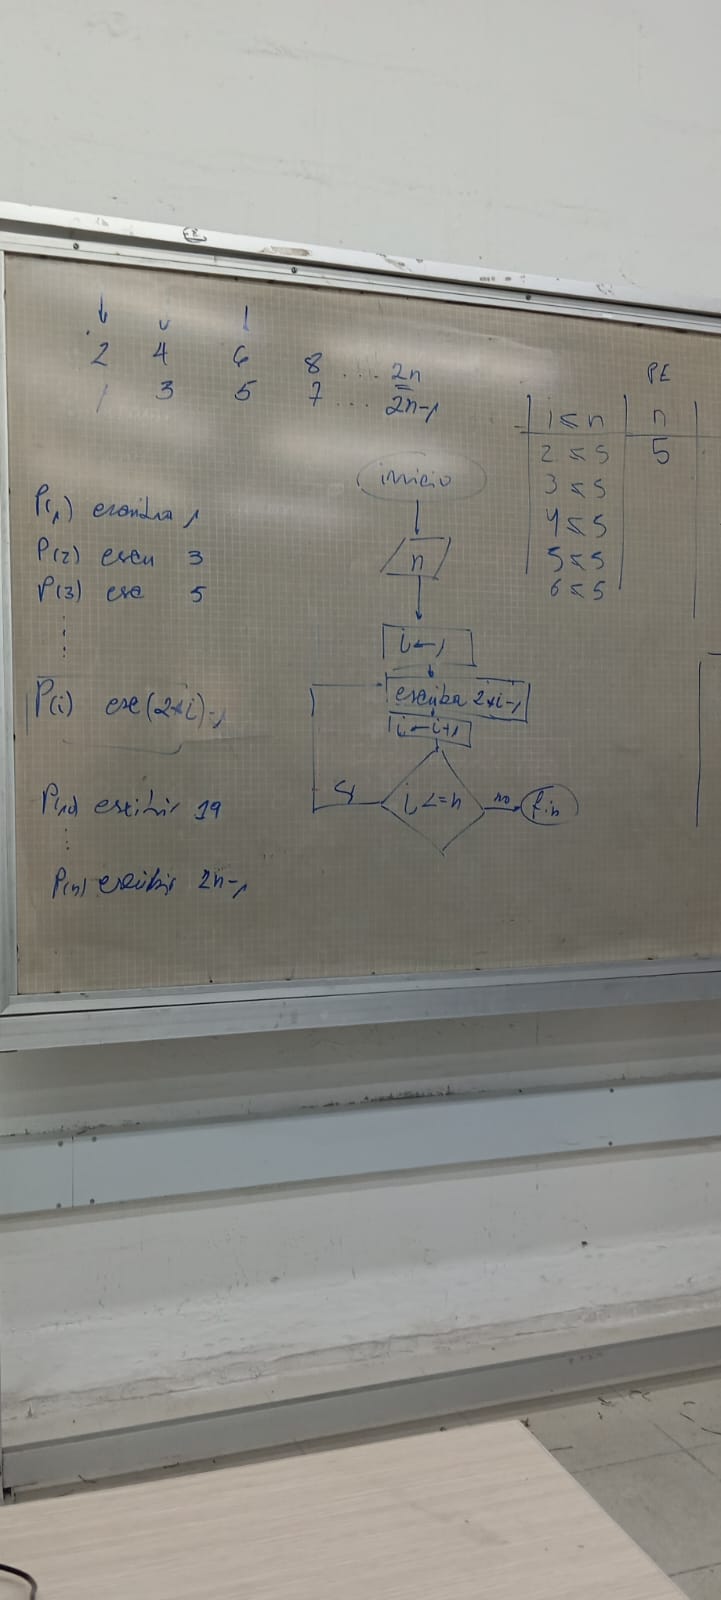 2 4 6 8 .... 2n
1 3 5 7 ... 2n-1
P(1) escriba 1
P(2) escri 3
P(3) esc 5
P(i) esc (2*i)-1
P(10) escribir 19
P(n) escribir 2n-1
inicio
n
i ← 1
escriba 2*i-1
i ← i+1
i <= n
si
no
fin
PE
i ≤ n | n
2 ≤ 5 | 5
3 ≤ 5
4 ≤ 5
5 ≤ 5
6 ≤ 5